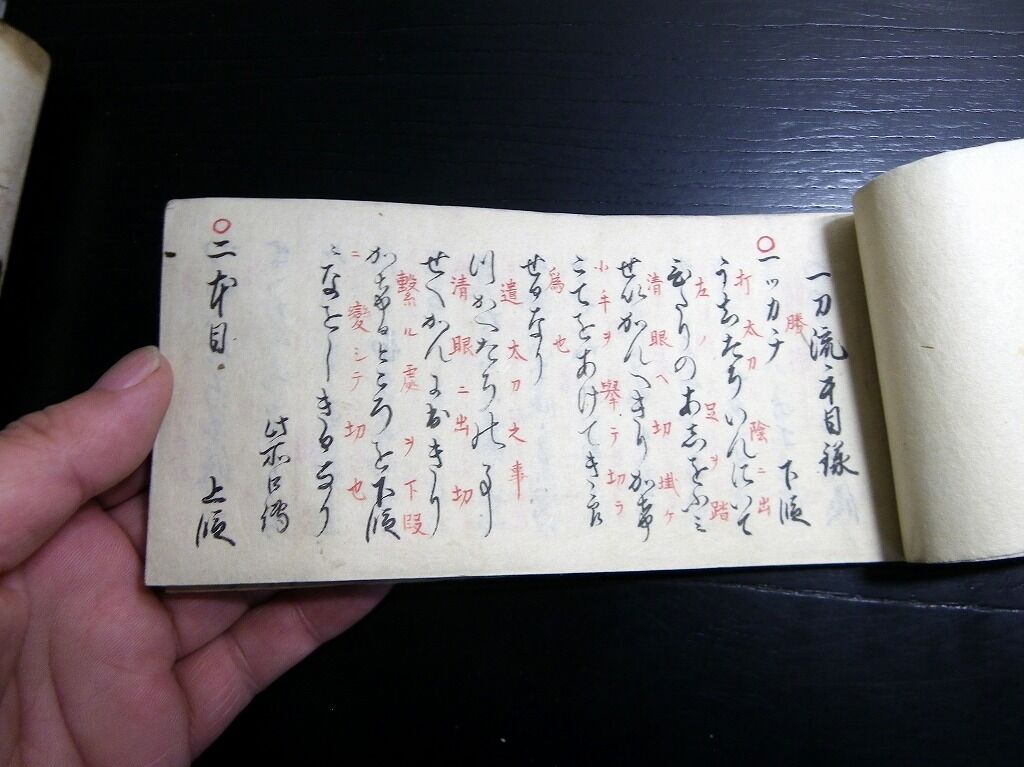 一刀流一本目録
一ツカチ 下段
勝
うちたちいんにいて
打太刀 陰ニ出
ひたりのあしをふミ
左ノ足ヲ踏
せいかんへきりかけ
清眼ヘ切掛ケ
こてをあけてきら
小手ヲ擧テ切ラ
せるなり
爲也
つかへたちの事
遣太刀之事
せいかんにおきり
清眼ニ出切
かゝるところを下段
繋ル處ヲ下段
になをしきるなり
ニ變シテ切也
此所口傳
二本目 上段